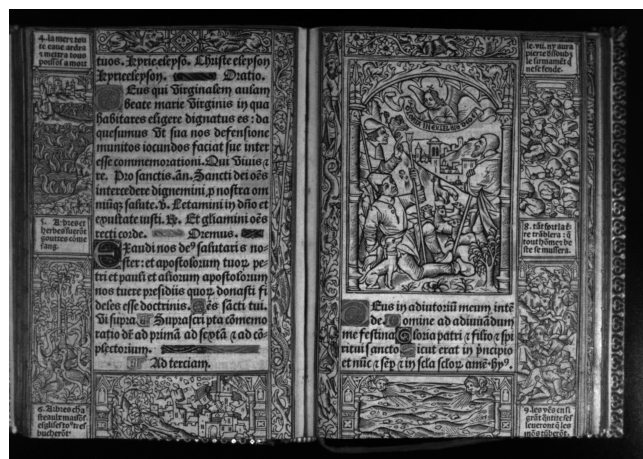 4. la mer⁊ tou
te eaue ardra
⁊ mettra tous
poissõs a mort
5. Arbres et
herbes suerõt
gouttes cõme
sang.
6. Arbres cha
steaulx maisõs
eglises to⁹ tres
bucherõt.
tuos. Kyrie eleysõ. Christe eleyson
Kyrie eleyson. Oratio.
Eus qui virginalem aulam
beate marie virginis in qua
habitares eligere dignatus es: da
quesumus vt sua nos defensione
munitos iocundos faciat sue inter
esse commemorationi. Qui viuis ⁊
re. Pro sanctis. añ. Sancti dei oẽs
intercedere dignemini, p nostra om
niũq₃ salute. v̉. Letamini in dño et
exultate iusti. ꝶ. Et gl̃iamini oẽs
recti corde. Oremus.
Exaudi nos de⁹ salutaris no-
ster: et apostolorum tuoꝝ pe-
tri et pauli et aliorum apostolorum
nos tuere presidiis quoꝝ donasti fi
deles esse doctrinis. Oẽs sãcti tui.
vt supra. Suprascripta cõmemo
ratio dr̃ ad primã ad sextã ⁊ ad cõ-
plectorium.
Ad terciam.
Eus in adiutoriũ meum intẽ
de. Domine ad adiuuãdum
me festina. Gloria patri ⁊ filio ⁊ spi
ritui sancto. Sicut erat in pñcipio
et nũc ⁊ sẽp ⁊ in scl̃a scl̃oꝝ. amẽ. hy⁹.
le. vii. ny aura
pierre dessoubz
le firmamẽt q̃
ne se fende.
8. tãt sera la t̃r
re trãblera: q̃
tout hõme ⁊ be
ste se mussera.
9. les vẽs en si
grãt q̃ntite ses
leueront q̃ les
mõs tũberõt.